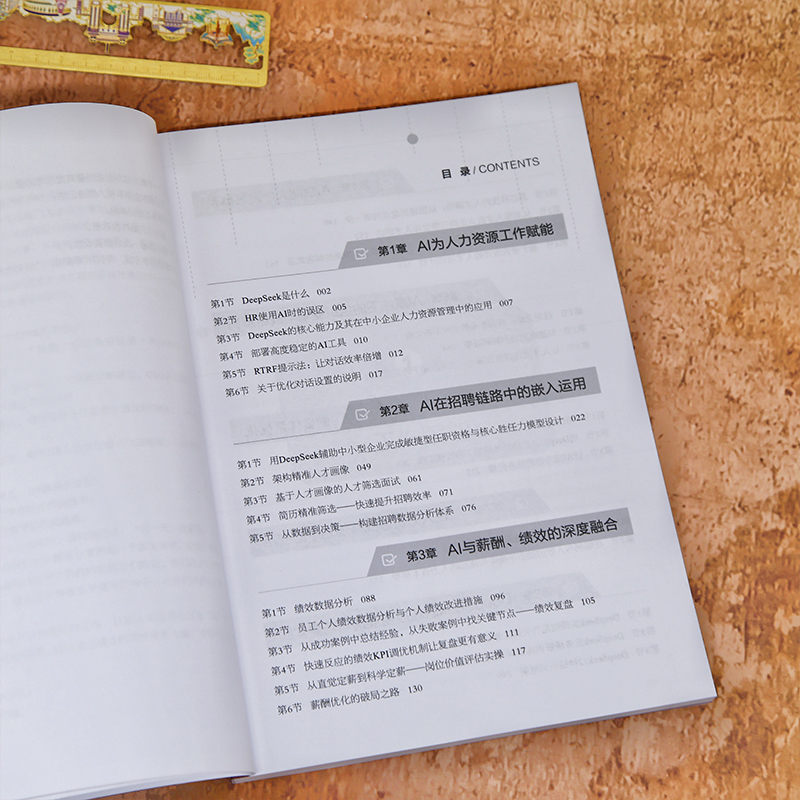 目 录 / CONTENTS
第1章 AI为人力资源工作赋能
第1节 DeepSeek是什么 002
第2节 HR使用AI时的误区 005
第3节 DeepSeek的核心能力及其在中小企业人力资源管理中的应用 007
第4节 部署高度稳定的AI工具 010
第5节 RTRF提示法：让对话效率倍增 012
第6节 关于优化对话设置的说明 017
第2章 AI在招聘链路中的嵌入运用
第1节 用DeepSeek辅助中小型企业完成敏捷型任职资格与核心胜任力模型设计 022
第2节 架构精准人才画像 049
第3节 基于人才画像的人才筛选面试 061
第4节 简历精准筛选——快速提升招聘效率 071
第5节 从数据到决策——构建招聘数据分析体系 076
第3章 AI与薪酬、绩效的深度融合
第1节 绩效数据分析 088
第2节 员工个人绩效数据分析与个人绩效改进措施 096
第3节 从成功案例中总结经验，从失败案例中找关键节点——绩效复盘 105
第4节 快速反应的绩效KPI调优机制让复盘更有意义 111
第5节 从直觉定薪到科学定薪——岗位价值评估实操 117
第6节 薪酬优化的破局之路 130